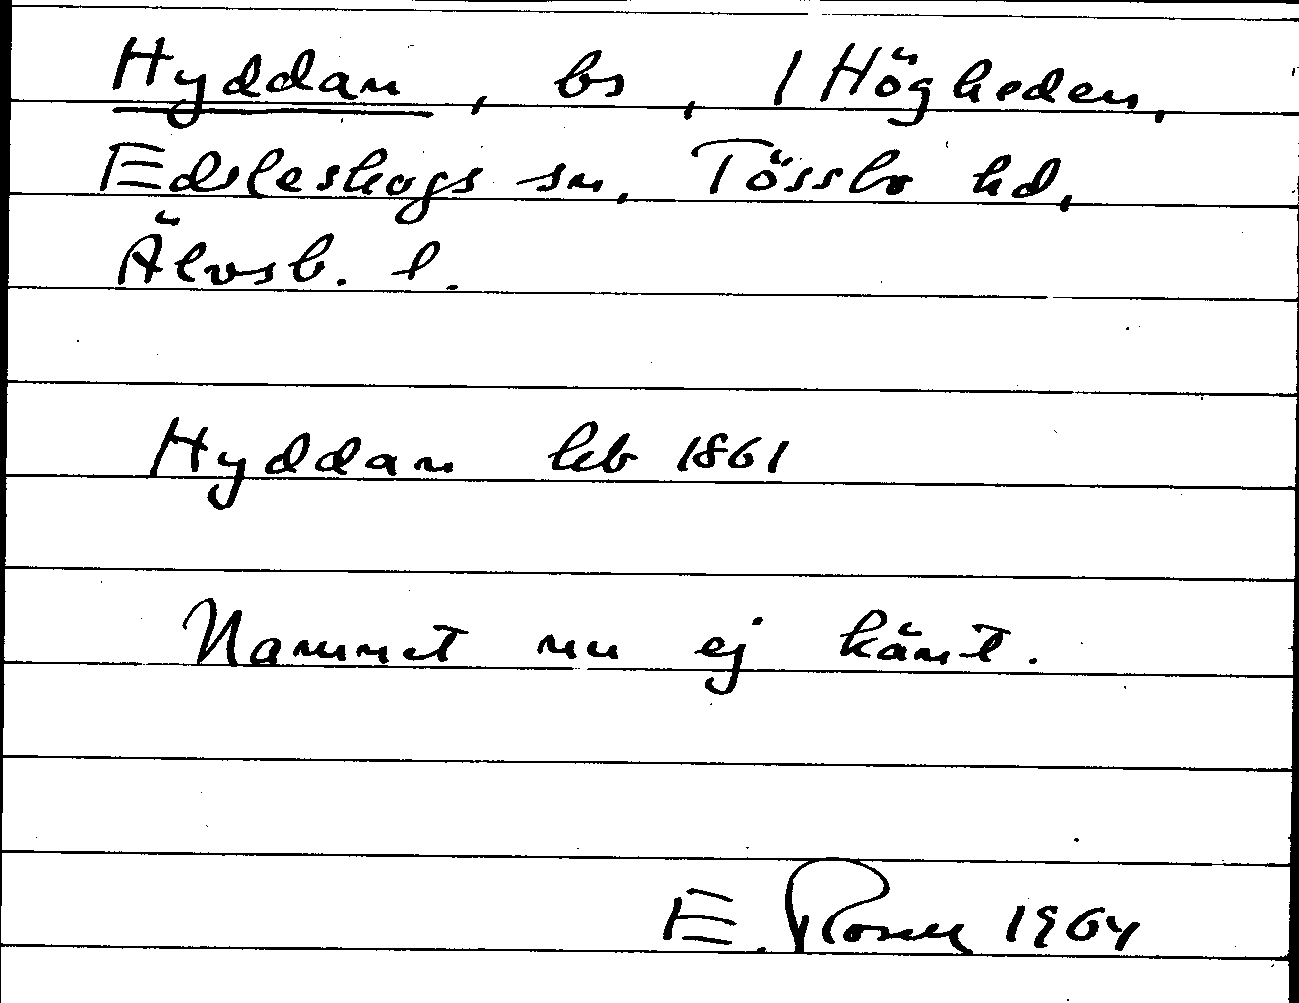 Hyddan, bs, 1 Högheden,
Edsleskogs sn, Tössbo hd,
Älvsb. l.
Hyddan hb 1861
Namnet nu ej känt.
E. 1964